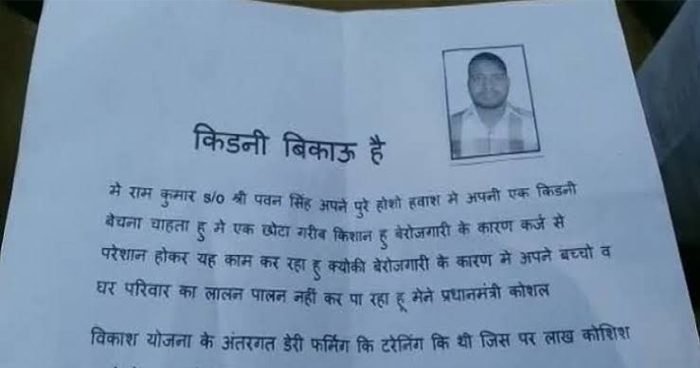 किडनी बिकाऊ है
मे राम कुमार s/o श्री पवन सिंह अपने पुरे होशो हवाश मे अपनी एक किडनी
बेचना चाहता हु मे एक छोटा गरीब किशान हु बेरोजगारी के कारण कर्ज से
परेशान होकर यह काम कर रहा हु क्योकी बेरोजगारी के कारण मे अपने बच्चो व
घर परिवार का लालन पालन नहीं कर पा रहा हू मेने प्रधानमंत्री कोशल
विकाश योजना के अंतरगत डेरी फर्मिंग कि टरेनिंग कि थी जिस पर लाख कोशिश